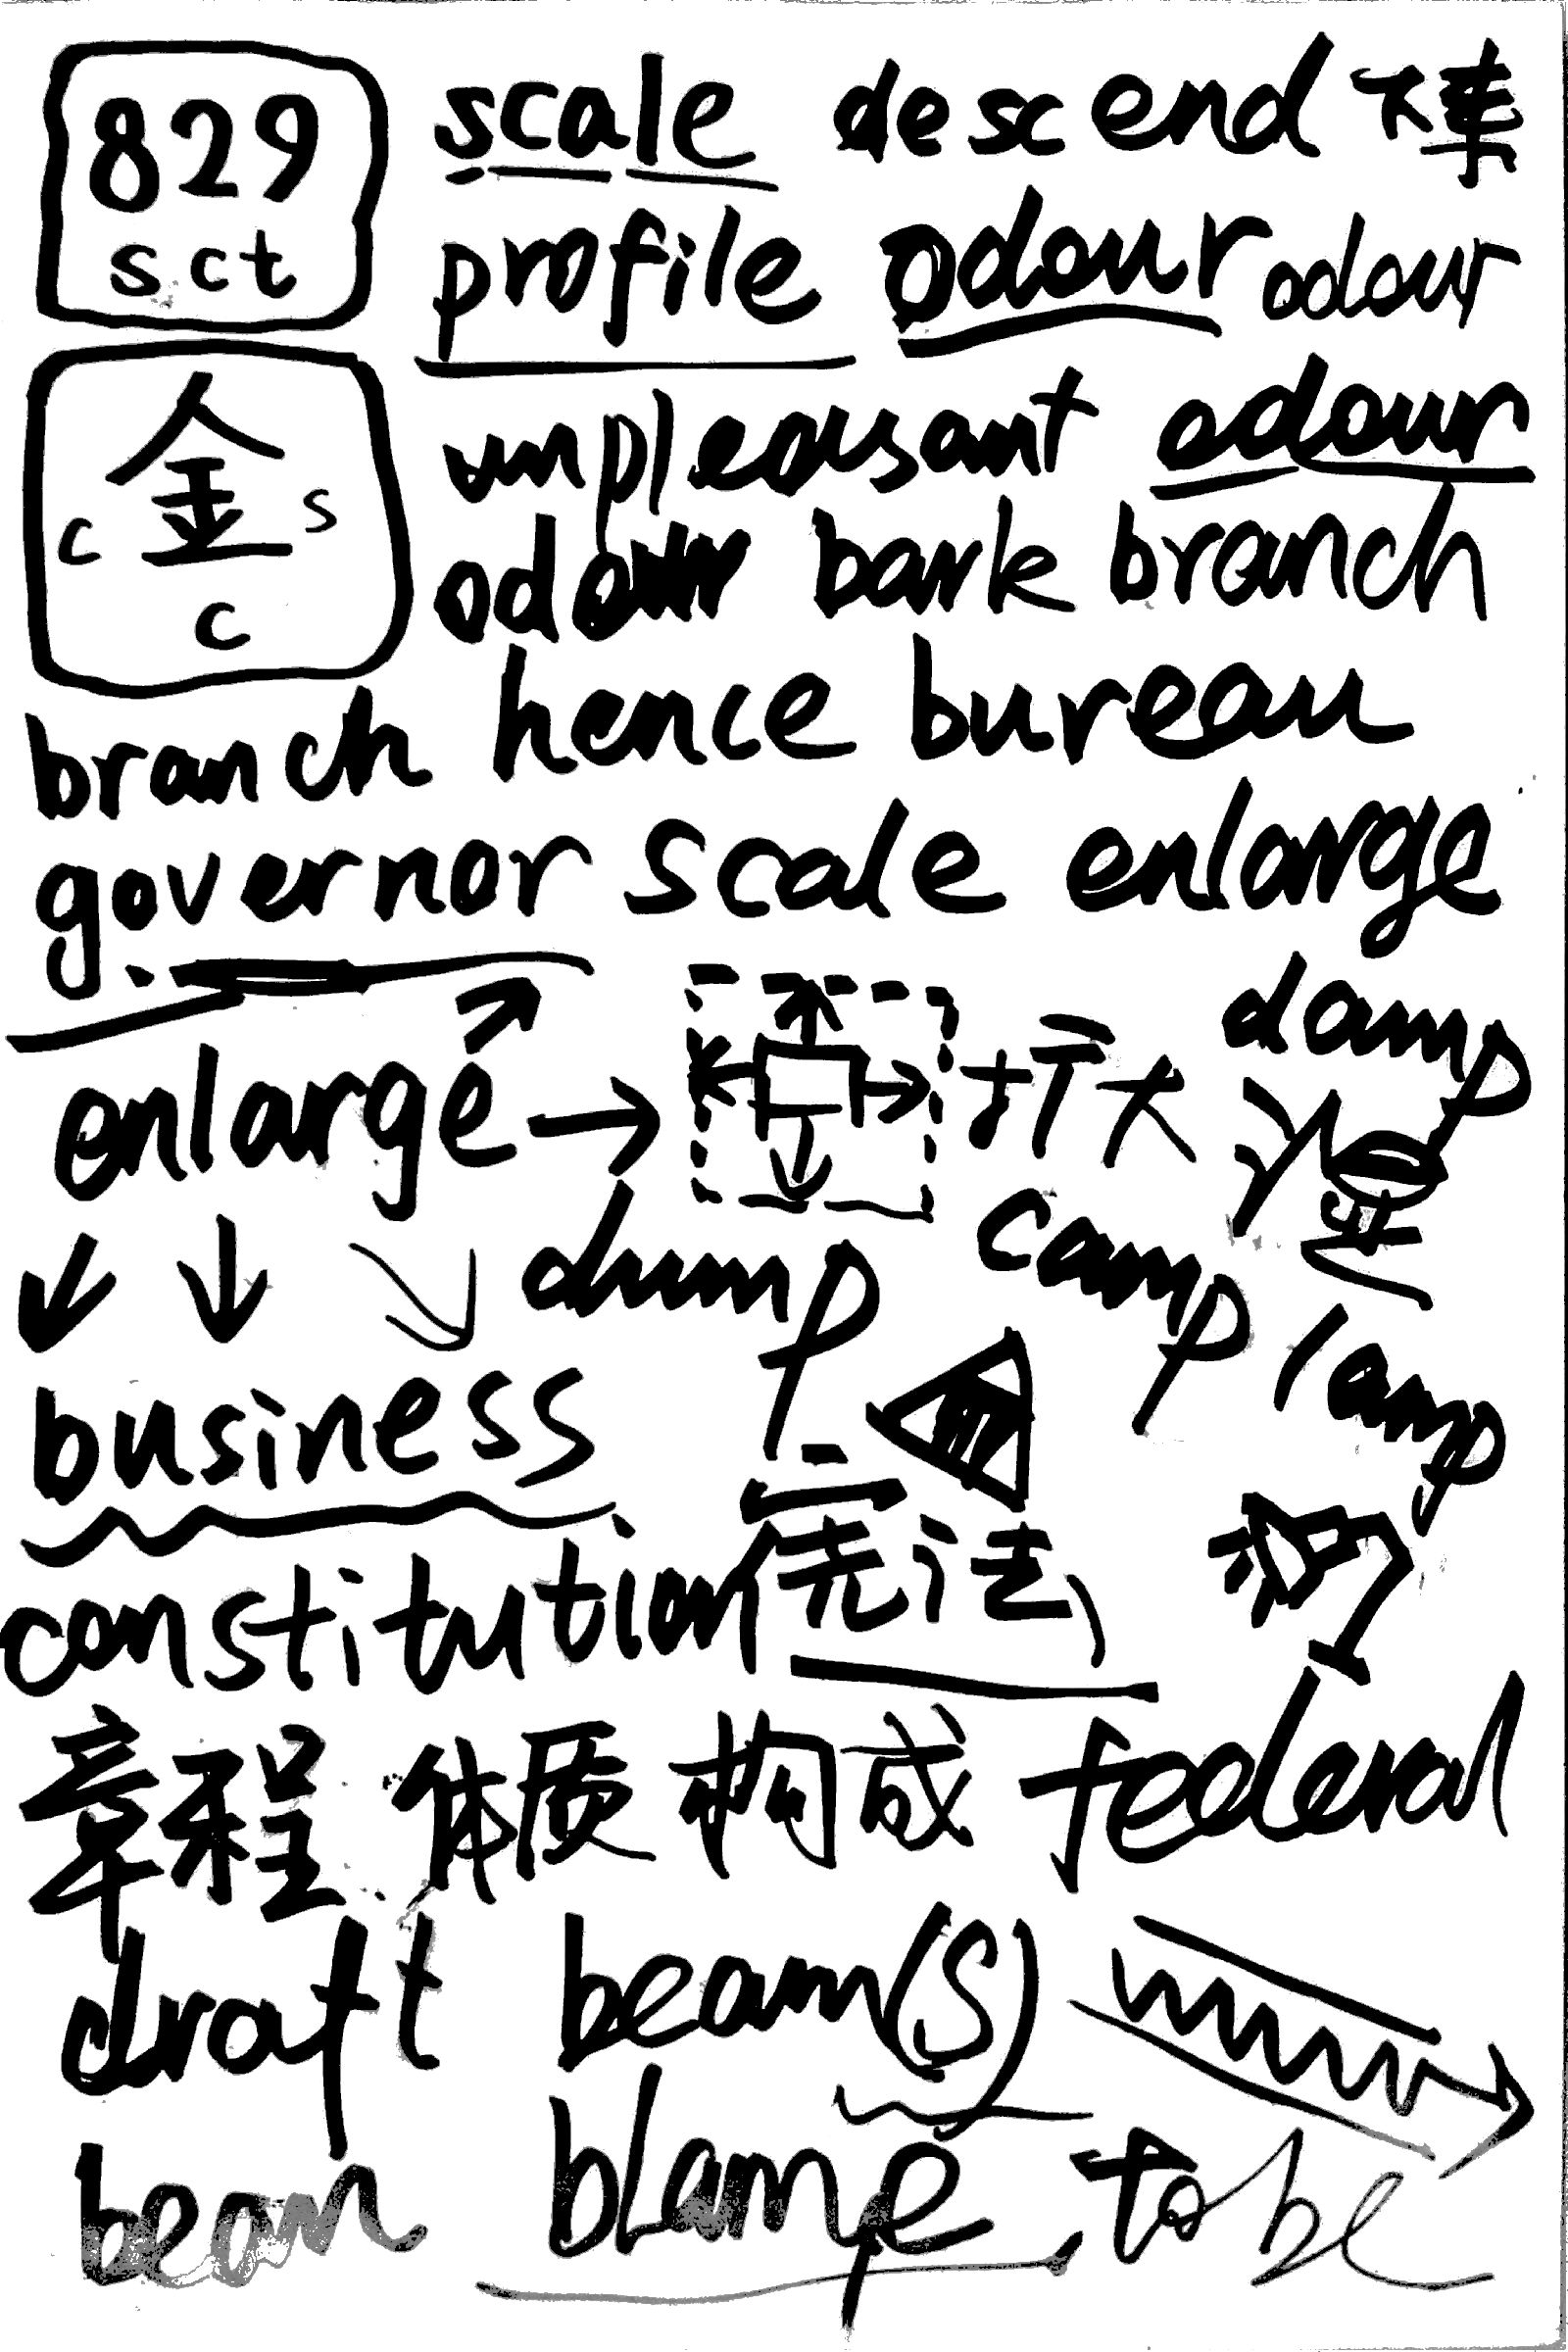 829
sct
scale descend 下降
profile odour odour
金
c s
c
unpleasant odour
odour bark branch
branch hence bureau
governor scale enlarge
enlarge 扩大 damp
湿
dump camp lamp
business
constitution(宪法)
章程 体质 构成 federal
draft beam(s)
bean blame to be